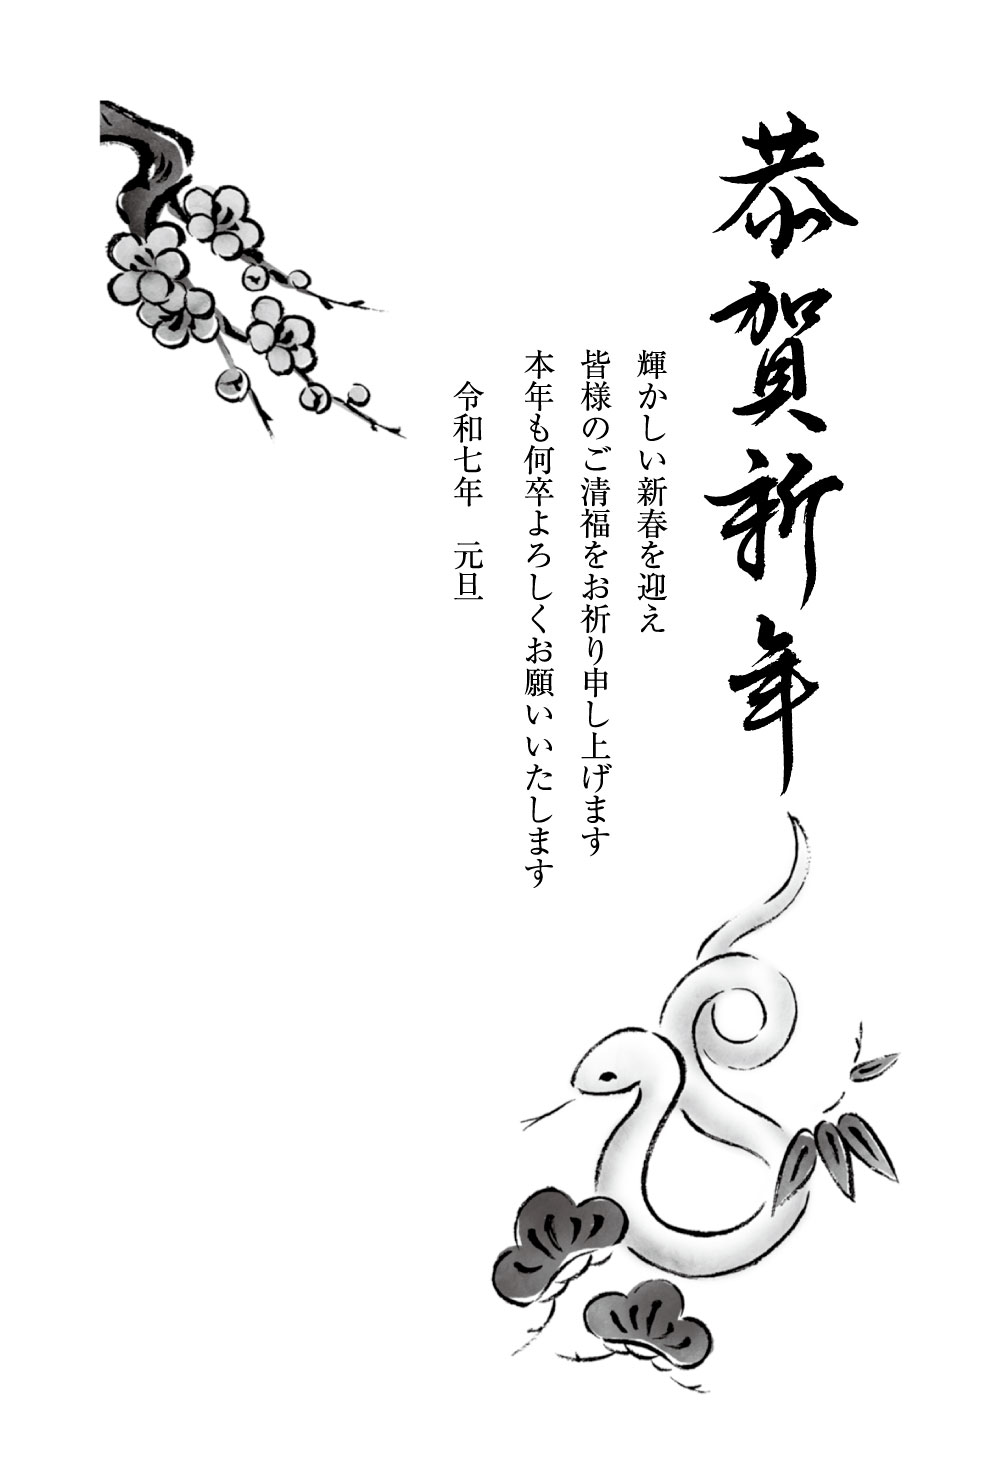 恭賀祈年
輝かしい新春を迎え
皆様のご清福をお祈り申し上げます
本年も何卒よろしくお願いいたします
令和七年　元旦